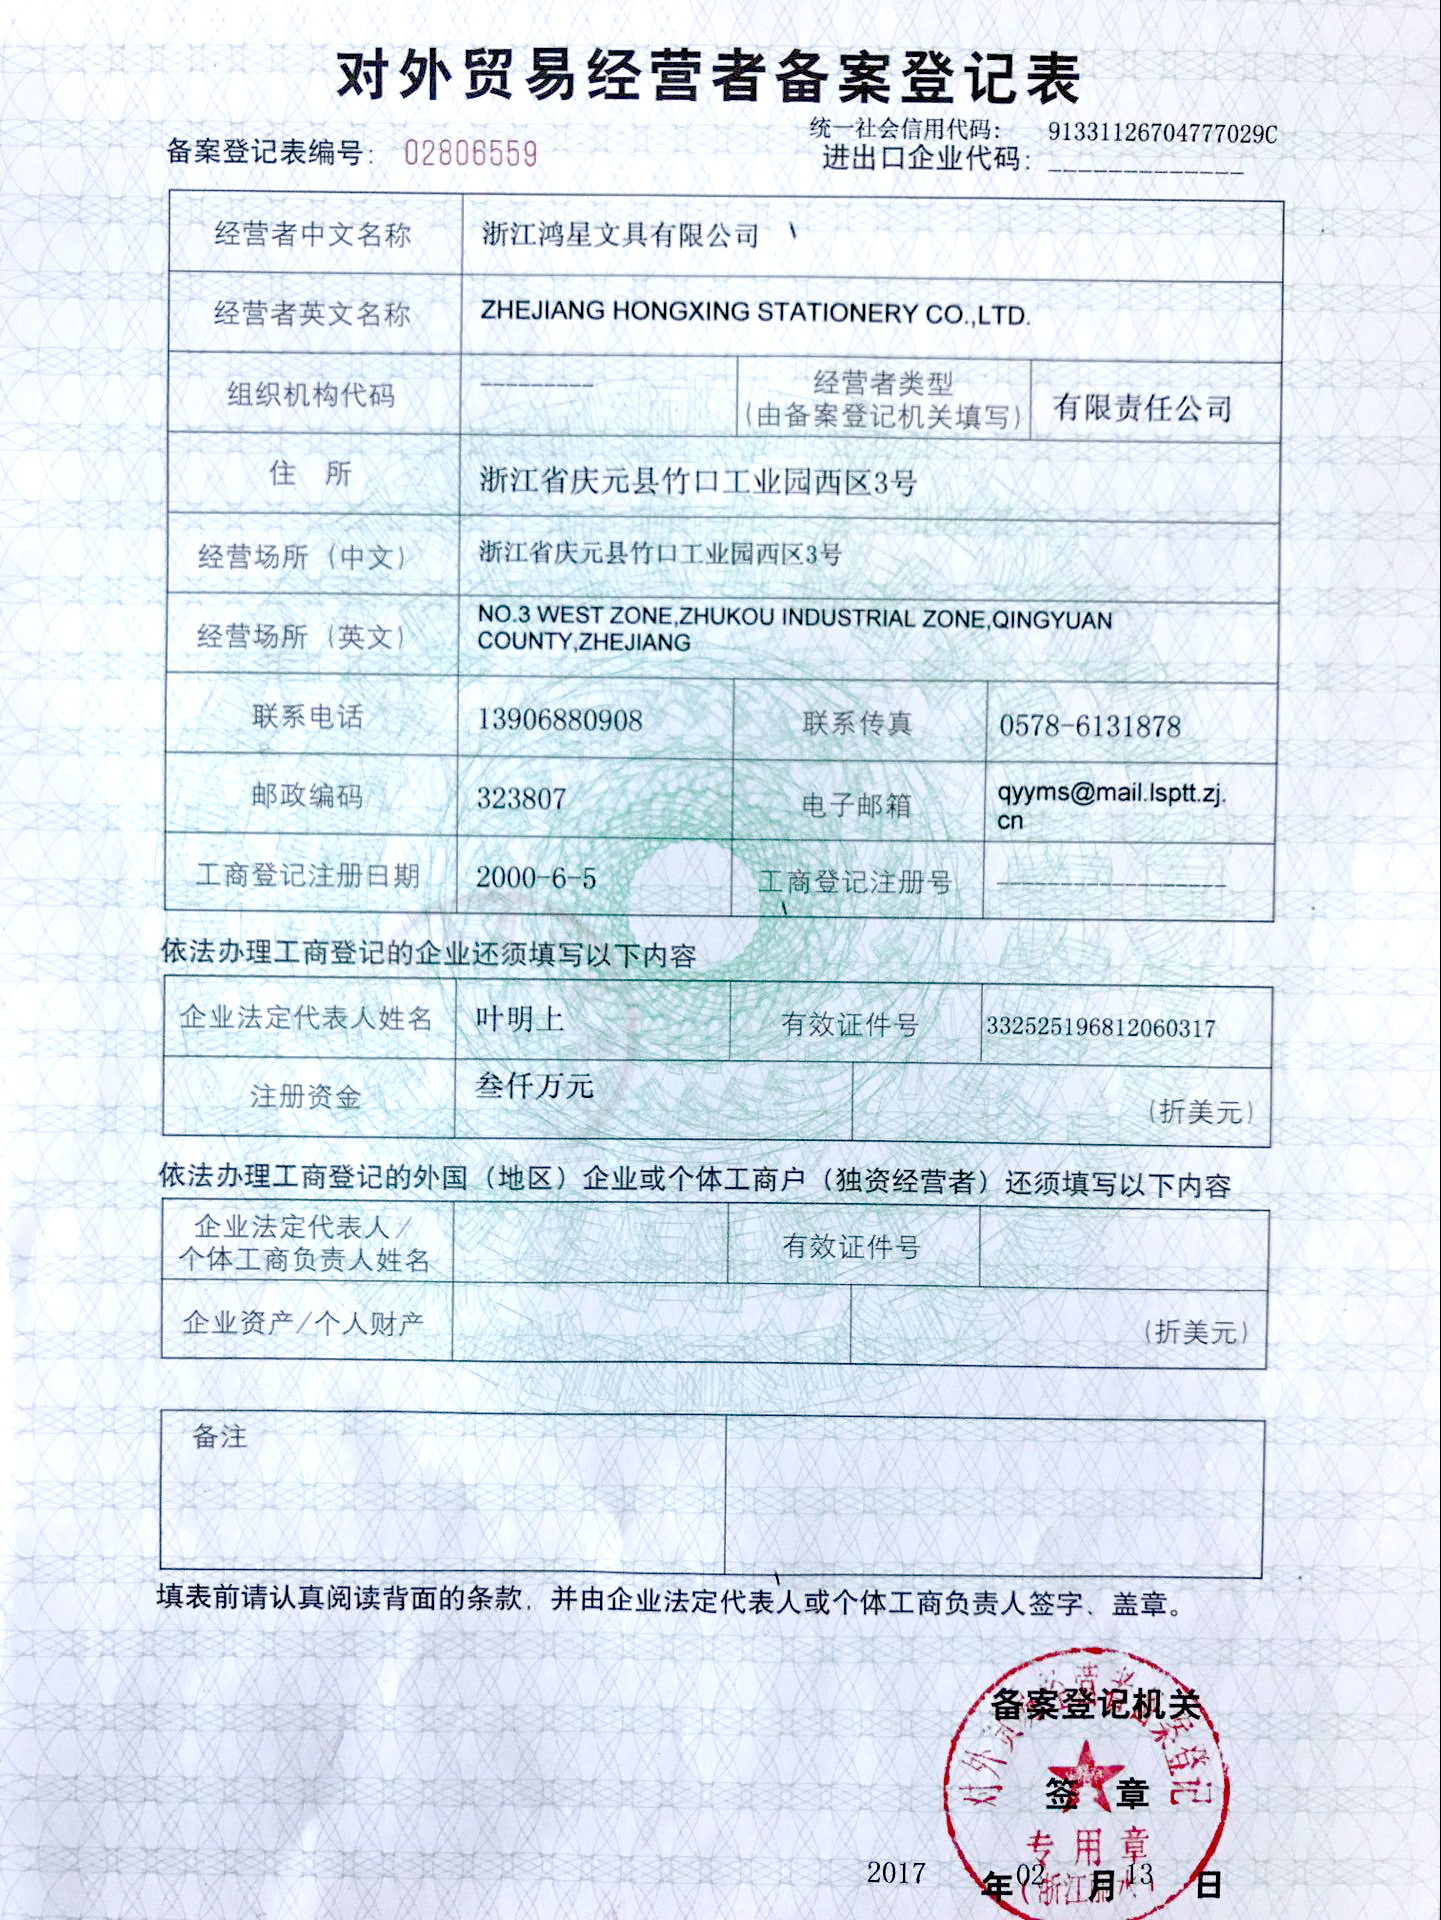 对外贸易经营者备案登记表
统一社会信用代码: 91331126704777029C
备案登记表编号: 02806559
进出口企业代码: _____________
经营者中文名称 浙江鸿星文具有限公司
经营者英文名称 ZHEJIANG HONGXING STATIONERY CO.,LTD.
组织机构代码 --------- 经营者类型 有限责任公司
(由备案登记机关填写)
住 所 浙江省庆元县竹口工业园西区3号
经营场所（中文） 浙江省庆元县竹口工业园西区3号
经营场所（英文） NO.3 WEST ZONE,ZHUKOU INDUSTRIAL ZONE,QINGYUAN
COUNTY,ZHEJIANG
联系电话 13906880908 联系传真 0578-6131878
邮政编码 323807 电子邮箱 qyyms@mail.lsptt.zj.
cn
工商登记注册日期 2000-6-5 工商登记注册号 ------------------
依法办理工商登记的企业还须填写以下内容
企业法定代表人姓名 叶明上 有效证件号 332525196812060317
注册资金 叁仟万元 (折美元)
依法办理工商登记的外国（地区）企业或个体工商户（独资经营者）还须填写以下内容
企业法定代表人/
个体工商负责人姓名 有效证件号
企业资产/个人财产 (折美元)
备注
填表前请认真阅读背面的条款，并由企业法定代表人或个体工商负责人签字、盖章。
对外贸易经营者备案登记
备案登记机关
签 章
专用章
2017 年 02 月 13 日
(浙江丽水)